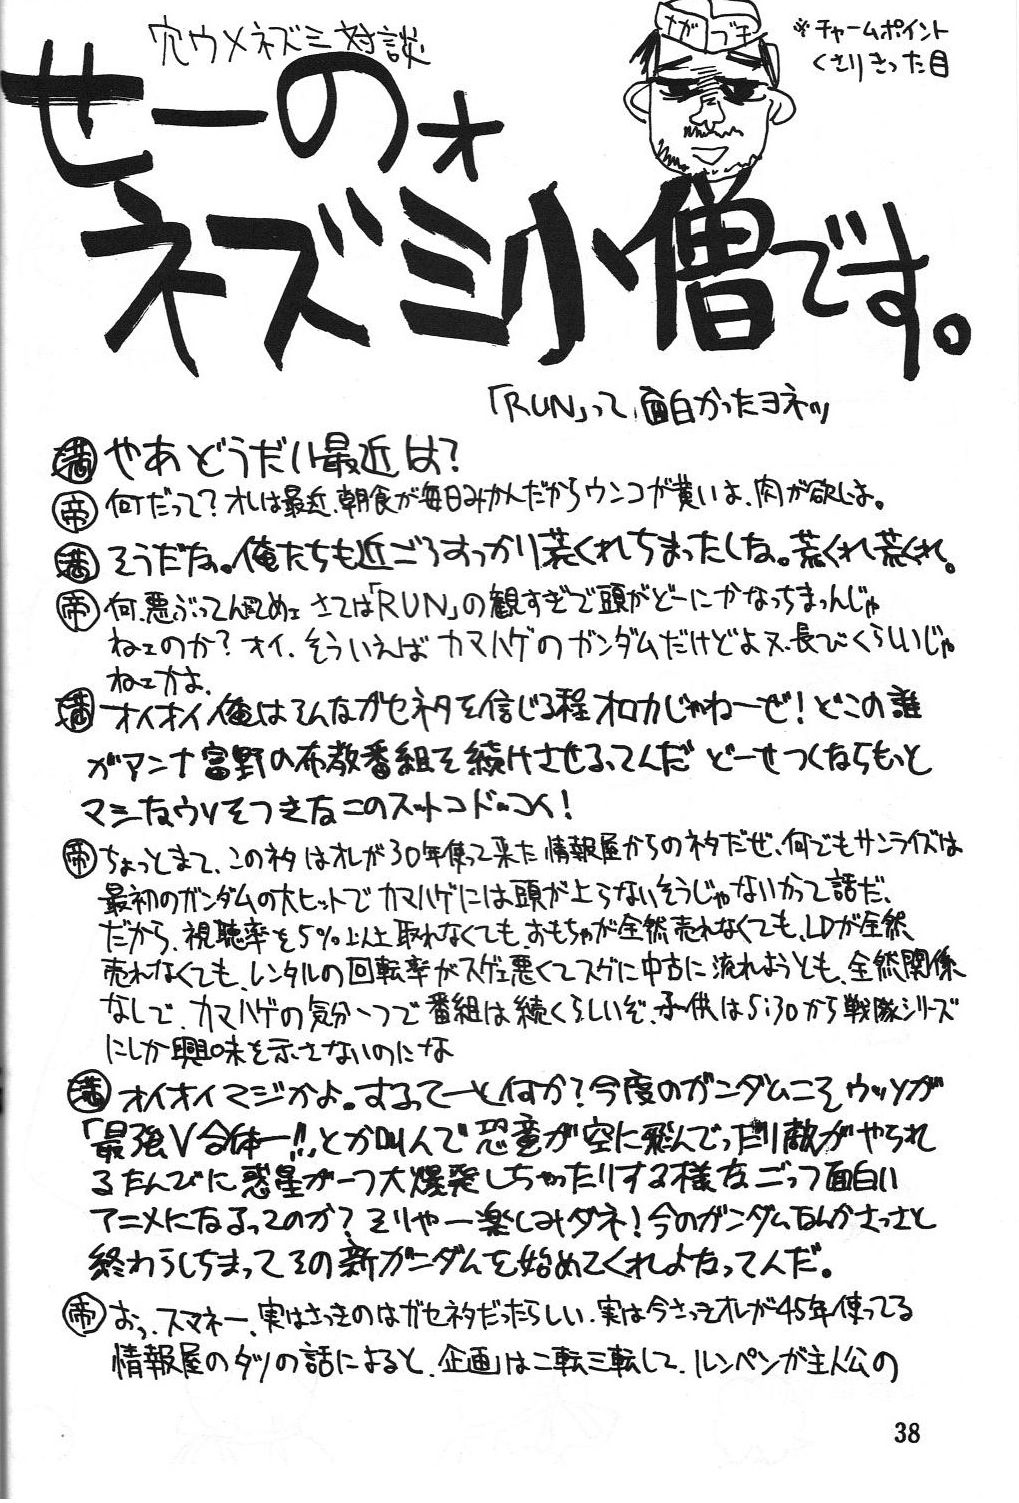 穴ウメネズミ対談
ながブチ
※チャームポイント
くさりきった目
せーのォ
ネズミ小僧です。
「RUN」って面白かったヨネッ
満 やあどうだい最近は?
帝 何だって?オレは最近、朝食が毎日みかんだからウンコが黄いよ、肉が欲しよ。
満 そうだな。俺たちも近ごろすっかり荒くれちまったしな。荒くれ荒くれ。
帝 何、悪ぶってんだめェ さては「RUN」の観すぎで頭がどーにかなっちまったんじゃ
ねェのか?オイ、そういえばカマハゲのガンダムだけどよ又、長びくらしいじゃ
ねェかよ。
満 オイオイ俺はそんなガセネタを信じる程オロカじゃねーぜ!どこの誰
がアンナ富野の布教番組を続けさせるってんだ どーせつくならもっと
マシなウソをつきなこのスットコドッコイ!
帝 ちょっとまて、このネタはオレが30年使って来た情報屋からのネタだぜ、何でもサンライズは
最初のガンダムの大ヒットでカマハゲには頭が上らないそうじゃないかって話だ、
だから、視聴率を5%以上取れなくても、おもちゃが全然売れなくても、LDが全然
売れなくても、レンタルの回転率がスゲェ悪くてスグに中古に流れようとも、全然関係
なしで、カマハゲの気分一つで番組は続くらしいぞ、子供は5:30から戦隊シリーズ
にしか興味を示さないのにな
満 オイオイマジかよ。するってーと何か?今度のガンダムこそウッソが
「最強V合体ー!!」とか叫んで恐竜が空に飛んでったり敵がやられ
るたんびに惑星が一つ大爆発しちゃったりする様なごっつ面白い
アニメになるってのか?そりゃー楽しみダネ!今のガンダムなんかさっさと
終わらしちまってその新ガンダムを始めてくれよなってんだ。
帝 おっ、スマネー、実はさっきのはガセネタだったらしい、実は今さっきオレが45年使ってる
情報屋のダツの話によると、企画は二転三転して、ルンペンが主人公の
38